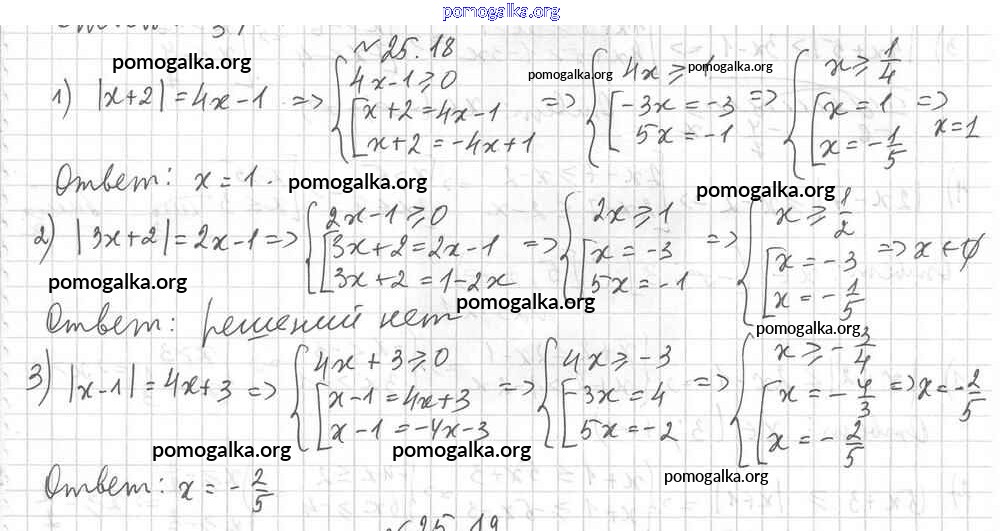 pomogalka.org
№ 25.18
pomogalka.org
1) |x+2| = 4x-1 => { 4x-1⩾0 [ x+2 = 4x-1 x+2 = -4x+1 => { 4x ⩾ 1 [ -3x = -3 5x = -1 => { x ⩾ 1/4 [ x = 1 x = -1/5 => x=1
pomogalka.org
pomogalka.org
pomogalka.org
Ответ: x = 1.
pomogalka.org
pomogalka.org
2) |3x+2| = 2x-1 => { 2x-1⩾0 [ 3x+2 = 2x-1 3x+2 = 1-2x => { 2x ⩾ 1 [ x = -3 5x = -1 => { x ⩾ 1/2 [ x = -3 x = -1/5 => x ∈ φ
pomogalka.org
pomogalka.org
Ответ: решений нет
pomogalka.org
3) |x-1| = 4x+3 => { 4x+3⩾0 [ x-1 = 4x+3 x-1 = -4x-3 => { 4x ⩾ -3 [ -3x = 4 5x = -2 => { x ⩾ -3/4 [ x = -4/3 x = -2/5 => x = -2/5
pomogalka.org
pomogalka.org
pomogalka.org
Ответ: x = -2/5
№25.19